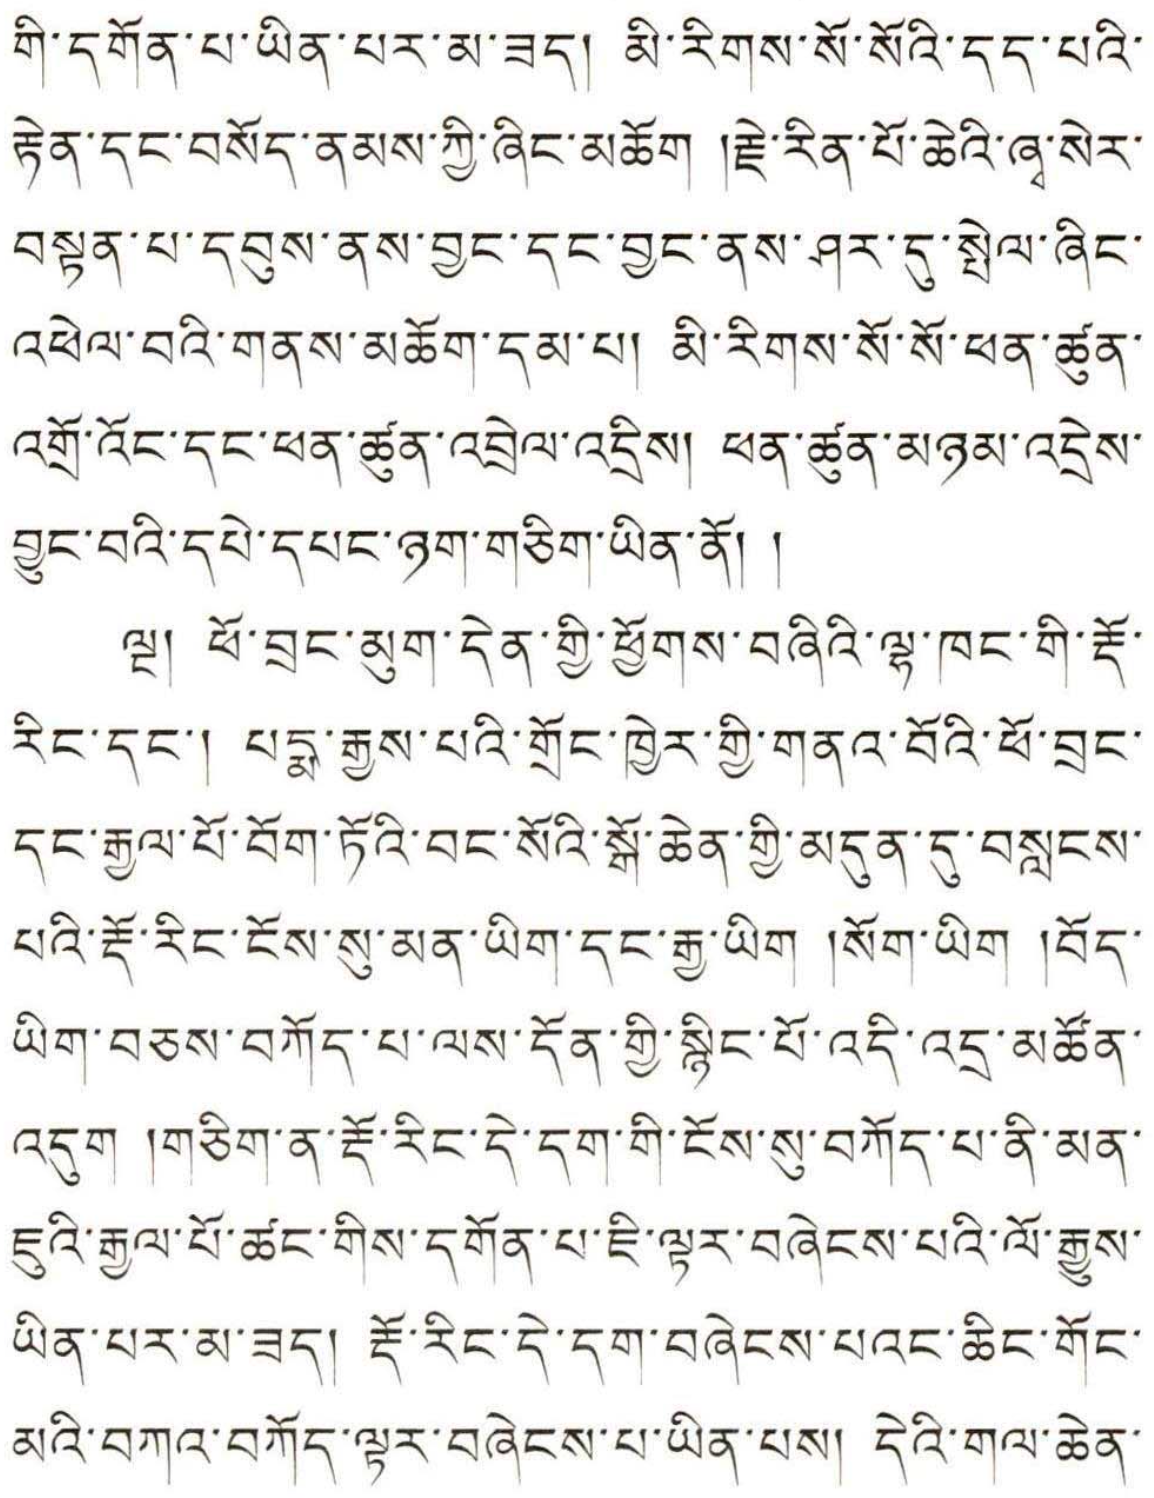 གི་དགོན་པ་ཡིན་པར་མ་ཟད། མི་རིགས་སོ་སོའི་དད་པའི་
རྟེན་དང་བསོད་ནམས་ཀྱི་ཞིང་མཆོག །རྗེ་རིན་པོ་ཆེའི་ཞྭ་སེར་
བསྟན་པ་དབུས་ནས་བྱང་དང་བྱང་ནས་ཤར་དུ་སྤེལ་ཞིང་
འཕེལ་བའི་གནས་མཆོག་དམ་པ། མི་རིགས་སོ་སོ་ཕན་ཚུན་
འགྲོ་འོང་དང་ཕན་ཚུན་འབྲེལ་འདྲིས། ཕན་ཚུན་མཉམ་འདྲེས་
བྱུང་བའི་དཔེ་དཔང་ཉག་གཅིག་ཡིན་ནོ། །
ལྔ། ཕོ་བྲང་མུག་དེན་གྱི་ཕྱོགས་བཞིའི་ལྷ་ཁང་གི་རྡོ་
རིང་དང་། པདྨ་རྒྱས་པའི་གྲོང་ཁྱེར་གྱི་གནའ་བོའི་ཕོ་བྲང་
དང་རྒྱལ་པོ་བོག་ཏོའི་བང་སོའི་སྒོ་ཆེན་གྱི་མདུན་དུ་བསླངས་
པའི་རྡོ་རིང་ངོས་སུ་མན་ཡིག་དང་རྒྱ་ཡིག །སོག་ཡིག །བོད་
ཡིག་བཅས་བཀོད་པ་ལས་དོན་གྱི་སྙིང་པོ་འདི་འདྲ་མཚོན་
འདུག །གཅིག་ན་རྡོ་རིང་དེ་དག་གི་ངོས་སུ་བཀོད་པ་ནི་མན་
ཇུའི་རྒྱལ་པོ་ཚང་གིས་དགོན་པ་ཇི་ལྟར་བཞེངས་པའི་ལོ་རྒྱུས་
ཡིན་པར་མ་ཟད། རྡོ་རིང་དེ་དག་བཞེངས་པའང་ཆིང་གོང་
མའི་བཀའ་བཀོད་ལྟར་བཞེངས་པ་ཡིན་པས། དེའི་གལ་ཆེན་